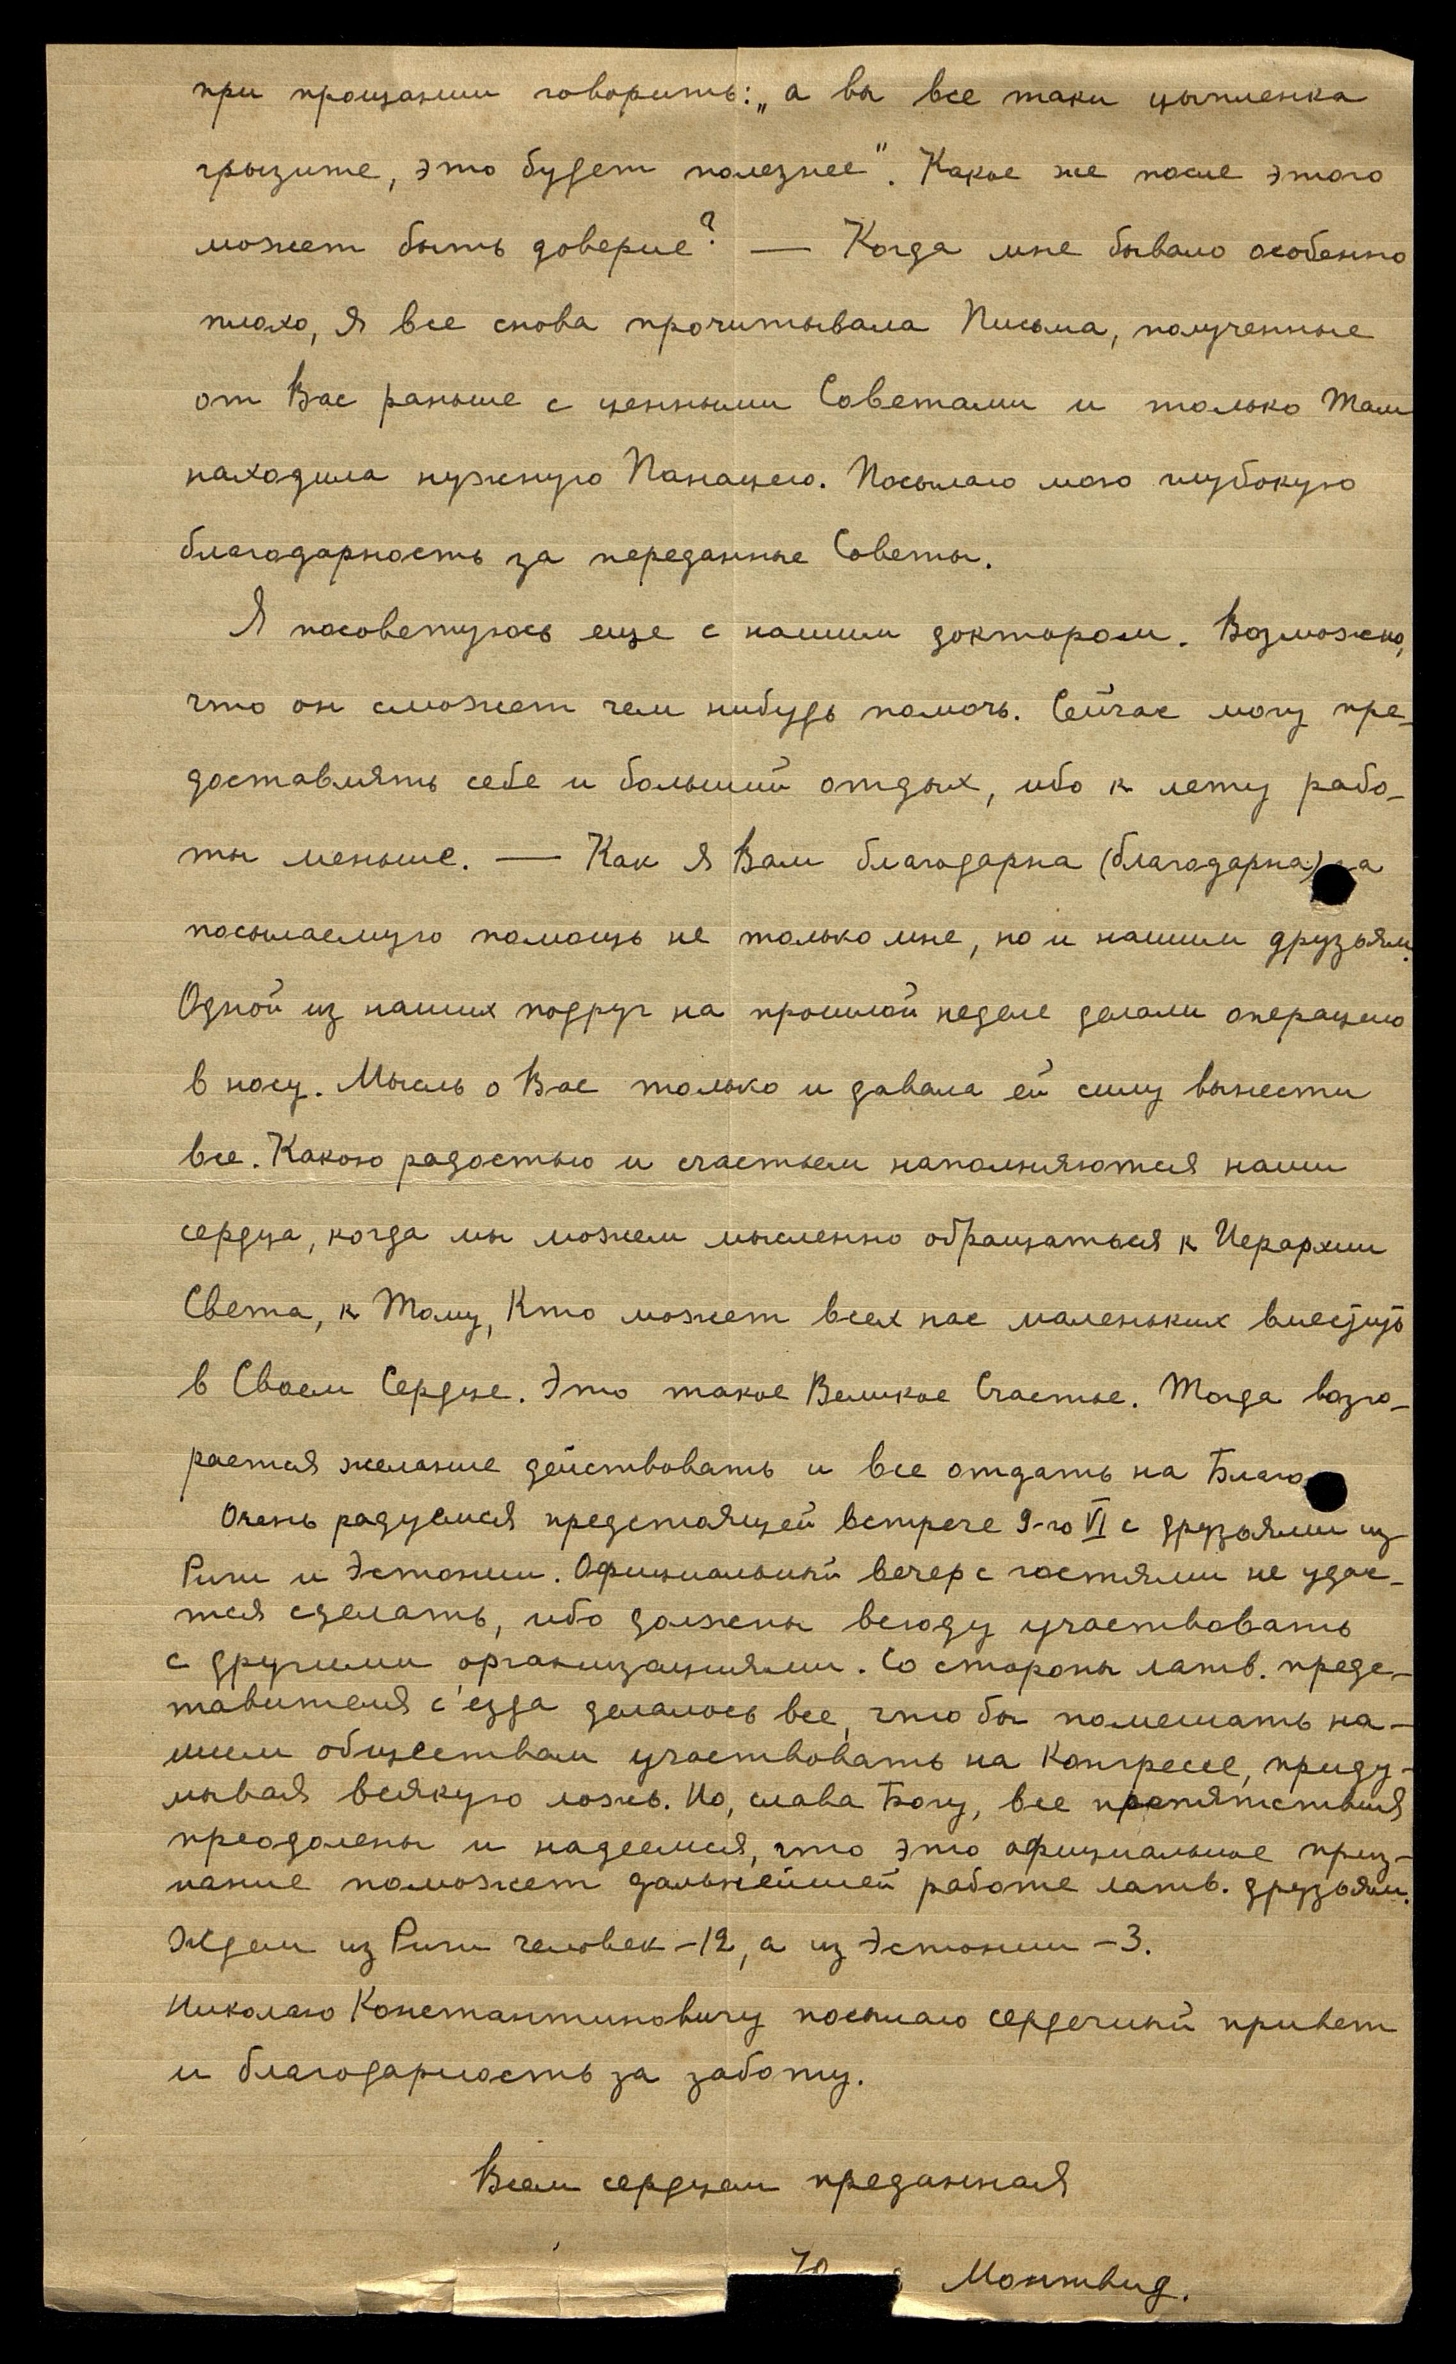 при прощании говорить: „а вы все таки цыпленка
грызите, это будет полезнее". Какое же после этого
может быть доверие? — Когда мне бывало особенно
плохо, я все снова прочитывала Письма, полученные
от Вас раньше с ценными Советами и только Там
находила нужную Панацею. Посылаю мою глубокую
благодарность за переданные Советы.
Я посоветуюсь еще с нашим доктором. Возможно,
что он сможет чем нибудь помочь. Сейчас могу пре-
доставлять себе и больший отдых, ибо к лету рабо-
ты меньше. — Как я Вам благодарна (благодарна) за
посылаемую помощь не только мне, но и нашим друзьям.
Одной из наших подруг на прошлой неделе делали операцию
в носу. Мысль о Вас только и давала ей силу вынести
все. Какою радостью и счастьем наполняются наши
сердца, когда мы можем мысленно обращаться к Иерархии
Света, к Тому, Кто может всех нас маленьких вместить
в Своем Сердце. Это такое Великое Счастье. Тогда возго-
рается желание действовать и все отдать на Благо
Очень радуемся предстоящей встрече 9-го VI с друзьями из
Риги и Эстонии. Официальный вечер с гостями не удас-
тся сделать, ибо должны всюду участвовать
с другими организациями. Со стороны латв. предс-
тавителя с'езда делалось все, что бы помешать на-
шим обществам участвовать на Конгрессе, приду-
мывая всякую ложь. Но, слава Богу, все препятствия
преодолены и надеемся, что это официальное приз-
нание поможет дальнейшей работе латв. друзьям.
Ждем из Риги человек – 12, а из Эстонии – 3.
Николаю Константиновичу посылаю сердечный привет
и благодарность за заботу.
Всем сердцем преданная
Монтвид.